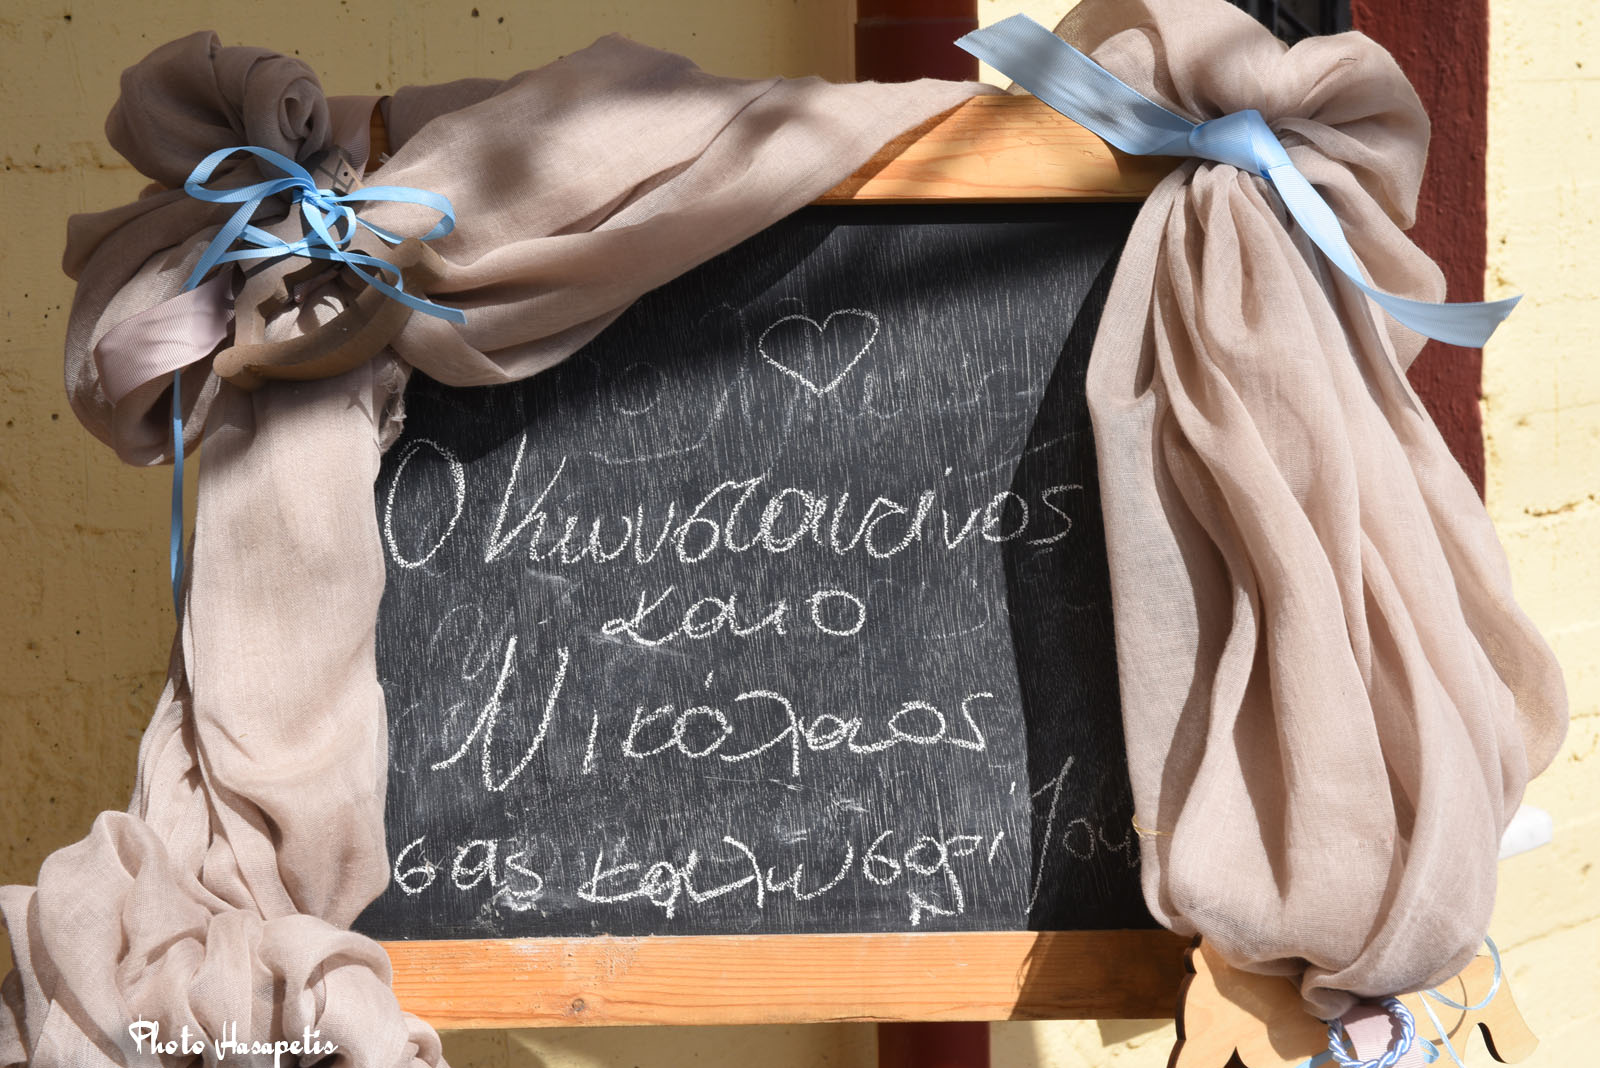 Ο Κωνσταντίνος
και ο
Νικόλαος
σας καλωσορί
Photo Hasapetis